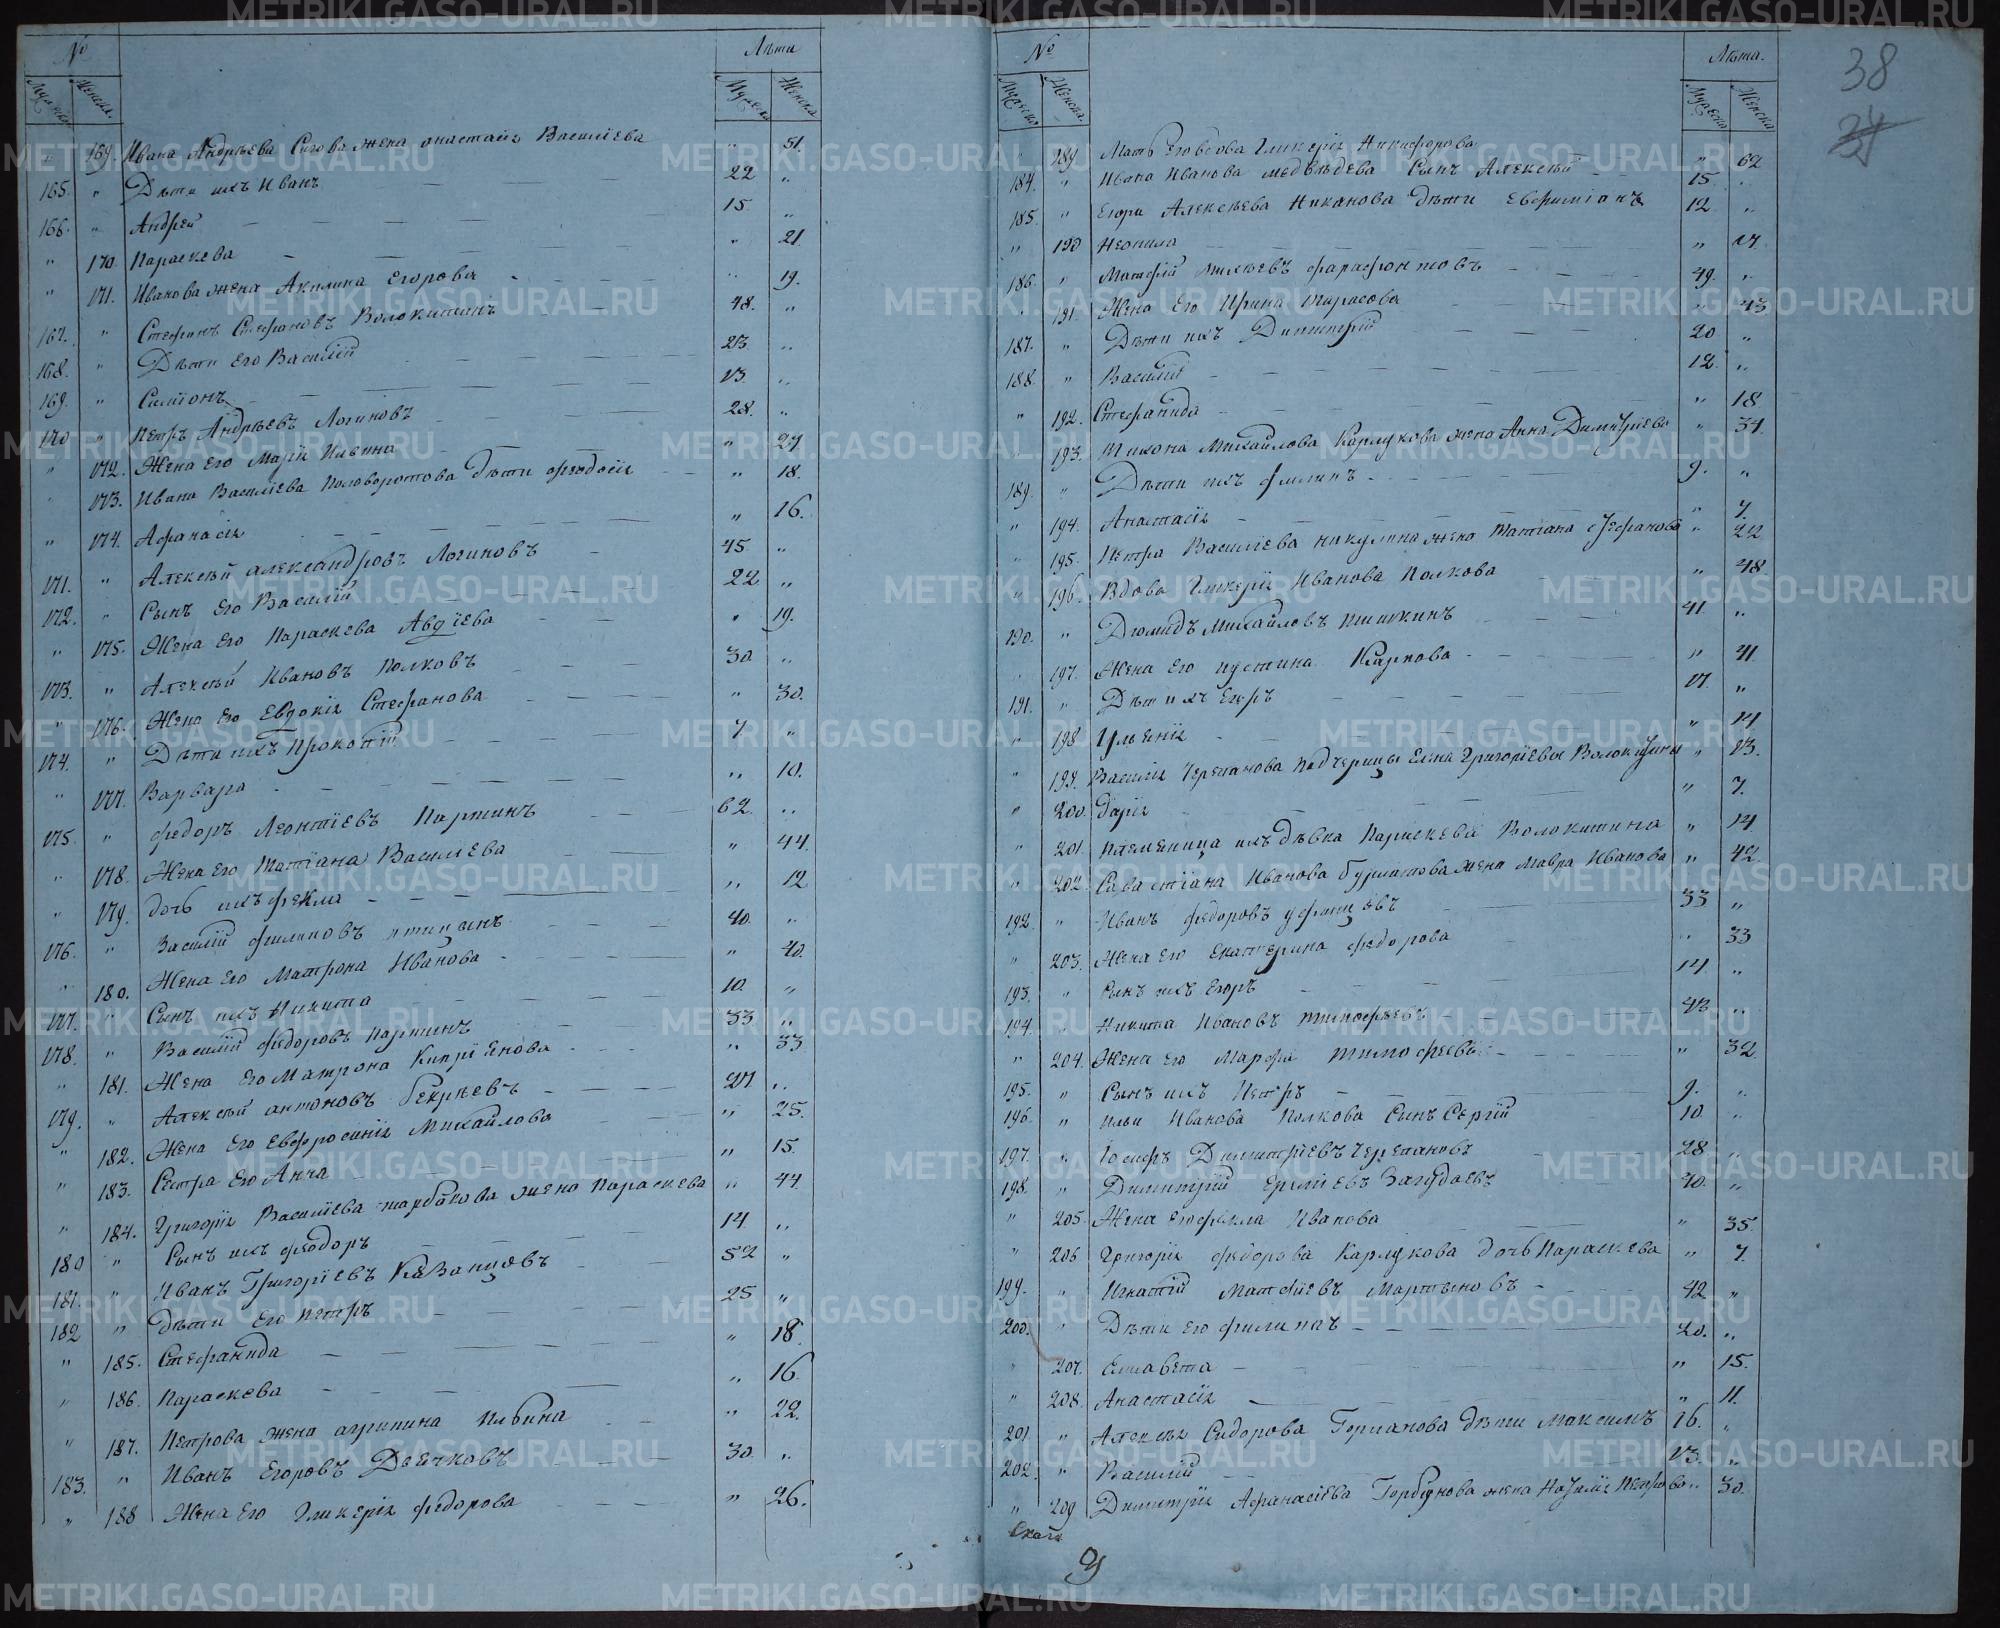 № Лѣта
Мужеска Женска. Мужеска Женска
" 169. Ивана Андрѣева Сигова жена Анастасія Василіева " 51.
165. " Дѣти ихъ Иванъ 22 "
166. " Андрей 15. "
" 170. Параскева " 21.
" 171. Иванова жена Акилина Егорова " 19.
167. " Стефанъ Стефановъ Волокитинъ 48. "
168. " Дѣти его Василій 23. "
169. " Симіонъ 13. "
170 " Петръ Андрѣевъ Логиновъ 28. "
" 172. Жена его Марія Ильина " 27
" 173. Ивана Василіева Половоротова дѣти Феодосія " 18.
" 174. Афанасія " 16.
171. " Алексѣй Александровъ Логиновъ 45 "
172. " Сынъ его Василій 22 "
" 175. Жена его Параскева Авдіева " 19.
173. " Алексѣй Ивановъ Полковъ 30. "
" 176. Жена его Евдокія Стефанова " 30.
174. " Дѣти ихъ Прокопій 7 "
" 177. Варвара " 10.
175. " Федоръ Леонтіевъ Паршинъ 62. "
" 178. Жена его Татіана Василіева " 44.
" 179. дочь ихъ Фекла " 12
176. " Василій Филиповъ Птицынъ 40. "
" 180. Жена его Матрона Иванова " 40.
177. " Сынъ ихъ Никита 10. "
178. " Василій Федоровъ Паршинъ 33 "
" 181. Жена его Матрона Кипріянова " 33
179. " Алексѣй Антоновъ Бекрѣевъ 27. "
" 182. Жена его Евфросинія Михайлова " 25.
" 183. Сестра его Анна " 15.
" 184. Григорія Василіева жена Параскева " 44.
180 " Сынъ ихъ Федоръ 14. "
181. " Иванъ Григоріевъ Казанцовъ 52 "
182 " дѣти его Петръ 25 "
" 185. Стефанида " 18.
" 186. Параскева " 16.
" 187. Петрова жена Агрипина Ильина " 22.
183. " Иванъ Егоровъ Дьячковъ 30. "
" 188 Жена его Гликерія Федорова " 26.
№ Лѣта.
Мужеска Женска. Мужеска Женска
38
" 189. Мать его вдова Гликерія Никифорова " 62
184. " Ивана Иванова Медвѣдева Сынъ Алексѣй 15 "
185. " Егора Алексѣева Никанова дѣти Ефиміанъ 12. "
" 190 Неонила " 17.
186. " Матфій Фарафонтовъ 49. "
" 191. Жена его Ирина Тарасова " 43
187. " Дѣти ихъ Димитрій 20 "
188. " Василій 12. "
" 192. Стефанида " 18
" 193. Тихона Михайлова Карлукова жена Анна Димитріева " 34.
189. " Дѣти ихъ Филипъ 9. "
" 194. Анастасія " 7.
" 195. Петра Василіева Никулина жена Татіана Стефанова " 22
" 196. Вдова Гликерія Иванова Полкова " 48
190. " Діомидъ Михайловъ Пишкинъ 41. "
" 197. Жена его Іустина Карпова " 41.
191. " Дѣти ихъ Егоръ 17. "
" 198 Ульянія " 14
" 199. Василія Черепанова Падчерицы Елена Григоріева Волокитины " 13.
" 200. Дарія " 7.
" 201. Племяница ихъ дѣвка Параскева Волокитина " 14
" 202. Савастіана Иванова Бурматова жена Мавра Иванова " 42.
192. " Иванъ Федоровъ Уфинцовъ 33 "
" 203. Жена его Екатерина Федорова " 33
193. " Сынъ ихъ Егоръ 14 "
194. " Никита Ивановъ Тимофѣевъ 43 "
" 204. Жена его Марфа Тимофеева " 32
195. " Сынъ ихъ Петръ 9. "
196. " Ильи Иванова Полкова Сынъ Сергій 10. "
197. " Іосифъ Димитріевъ Черепановъ 28 "
198. " Димитрій Ерміевъ Загудаевъ 40. "
" 205. Жена его Фекла Иванова " 35.
" 206 Григорія Федорова Карлукова дочь Параскева " 7.
199. " Игнатій Матфіевъ Мартыновъ 42 "
200. " Дѣти его Филипъ 20. "
" 207. Елисавета " 15.
" 208. Анастасія " 11.
201 " Алексѣя Сидорова Горланова дѣти Максимъ 16. "
202. " Василій 13. "
" 209 Димитрія Афанасіева Горбунова жена Наталія Петрова " 30.